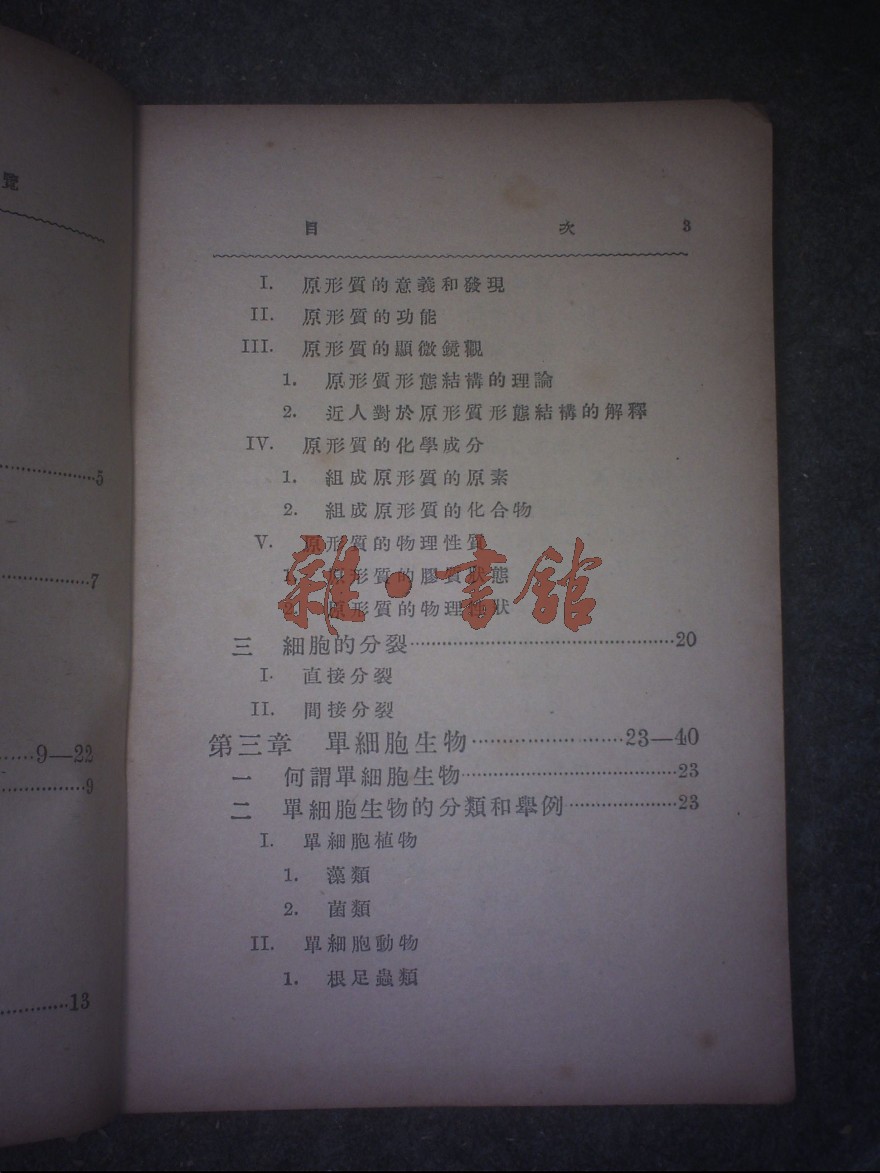 覽
5
7
9—22
9
13
目 次 3
I. 原形質的意義和發現
II. 原形質的功能
III. 原形質的顯微鏡觀
1. 原形質形態結構的理論
2. 近人對於原形質形態結構的解釋
IV. 原形質的化學成分
1. 組成原形質的原素
2. 組成原形質的化合物
V. 原形質的物理性質
1. 原形質的膠質狀態
2. 原形質的物理性狀
雜·書館
三 細胞的分裂……20
I. 直接分裂
II. 間接分裂
第三章 單細胞生物……23—40
一 何謂單細胞生物……23
二 單細胞生物的分類和舉例……23
I. 單細胞植物
1. 藻類
2. 菌類
II. 單細胞動物
1. 根足蟲類